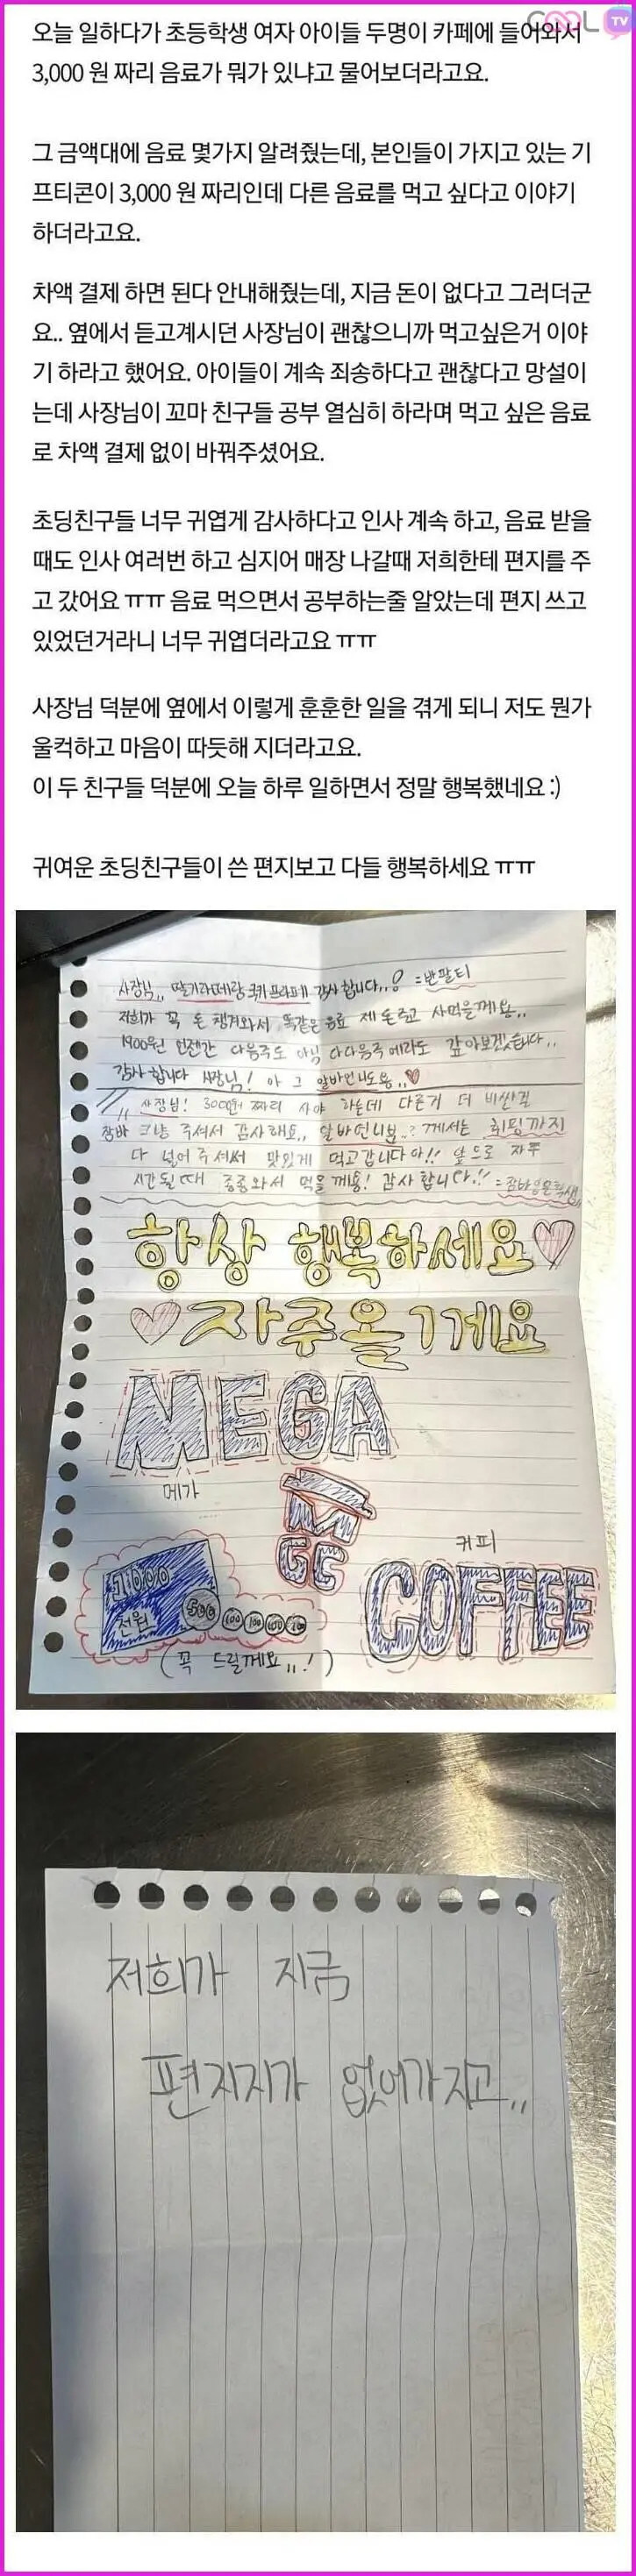 COOL TV
오늘 일하다가 초등학생 여자 아이들 두명이 카페에 들어와서
3,000 원 짜리 음료가 뭐가 있냐고 물어보더라고요.
그 금액대에 음료 몇가지 알려줬는데, 본인들이 가지고 있는 기
프티콘이 3,000 원 짜리인데 다른 음료를 먹고 싶다고 이야기
하더라고요.
차액 결제 하면 된다 안내해줬는데, 지금 돈이 없다고 그러더군
요.. 옆에서 듣고계시던 사장님이 괜찮으니까 먹고싶은거 이야
기 하라고 했어요. 아이들이 계속 죄송하다고 괜찮다고 망설이
는데 사장님이 꼬마 친구들 공부 열심히 하라며 먹고 싶은 음료
로 차액 결제 없이 바꿔주셨어요.
초딩친구들 너무 귀엽게 감사하다고 인사 계속 하고, 음료 받을
때도 인사 여러번 하고 심지어 매장 나갈때 저희한테 편지를 주
고 갔어요 ㅠㅠ 음료 먹으면서 공부하는줄 알았는데 편지 쓰고
있었던거라니 너무 귀엽더라고요 ㅠㅠ
사장님 덕분에 옆에서 이렇게 훈훈한 일을 겪게 되니 저도 뭔가
울컥하고 마음이 따듯해 지더라고요.
이 두 친구들 덕분에 오늘 하루 일하면서 정말 행복했네요 :)
귀여운 초딩친구들이 쓴 편지보고 다들 행복하세요 ㅠㅠ
사장님,, 딸기라떼랑 쿠키프라페 감사합니다,,! =반팔티
저희가 꼭 돈 챙겨와서 똑같은 음료 제 돈주고 사먹을께요..
1900원 언젠간 다음주도 아님 다다음주 에라도 갚아보겠습니다..
감사합니다 사장님! 아 그 알바언니도용,,♥
사장님! 3000원 짜리 사야 하는데 다른거 더 비싼걸
그냥 주셔서 감사해요,, 알바언니분..? 께서는 휘핑까지
다 넣어 주셔써 맛있게 먹고갑니다아!! 앞으로 자주
시간될때 종종와서 먹을께용! 감사합니다!!
항상 행복하세요♡
♡자주올게요
MEGA
메가
MGC
커피
COFFEE
1000
천원
500
100 100 100 100
(꼭 드릴께요,,!)
저희가 지금
편지지가 없어가지고,,